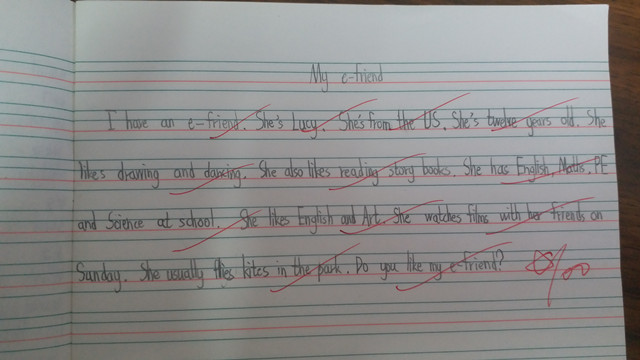 My e-friend
I have an e-friend. She's Lucy. She's from the US. She's twelve years old. She
likes drawing and dancing. She also likes reading story books. She has English, Maths, PE
and Science at school. She likes English and Art. She watches films with her friends on
Sunday. She usually flies kites in the park. Do you like my e-friend?